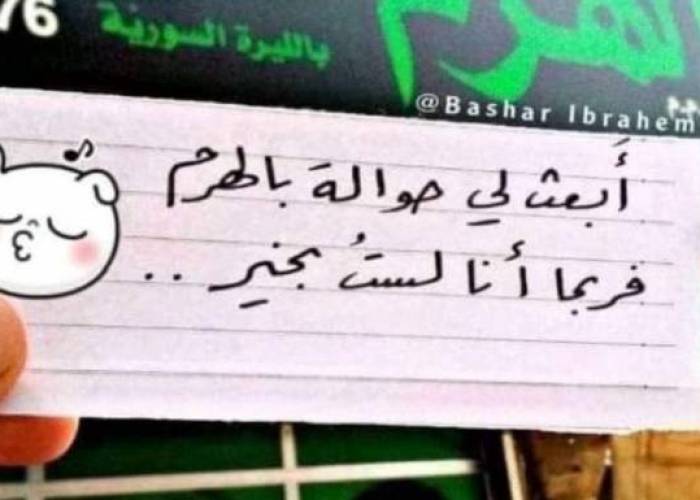 76
بالليرة السورية
الهرم
@Bashar Ibrahem
أبعث لي حوالة بالهرم
فربما أنا لستُ بخير ..